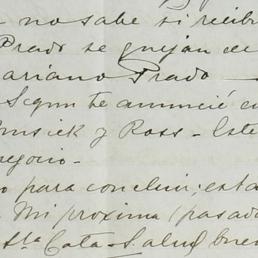 no sabe si recibi
Prado se quejan de
ariano Prado
Segun te anuncié en
y Ross - Este
egocio -
para concluir, esta
Mi proxima (pasado
Sta Cata - Salud buen